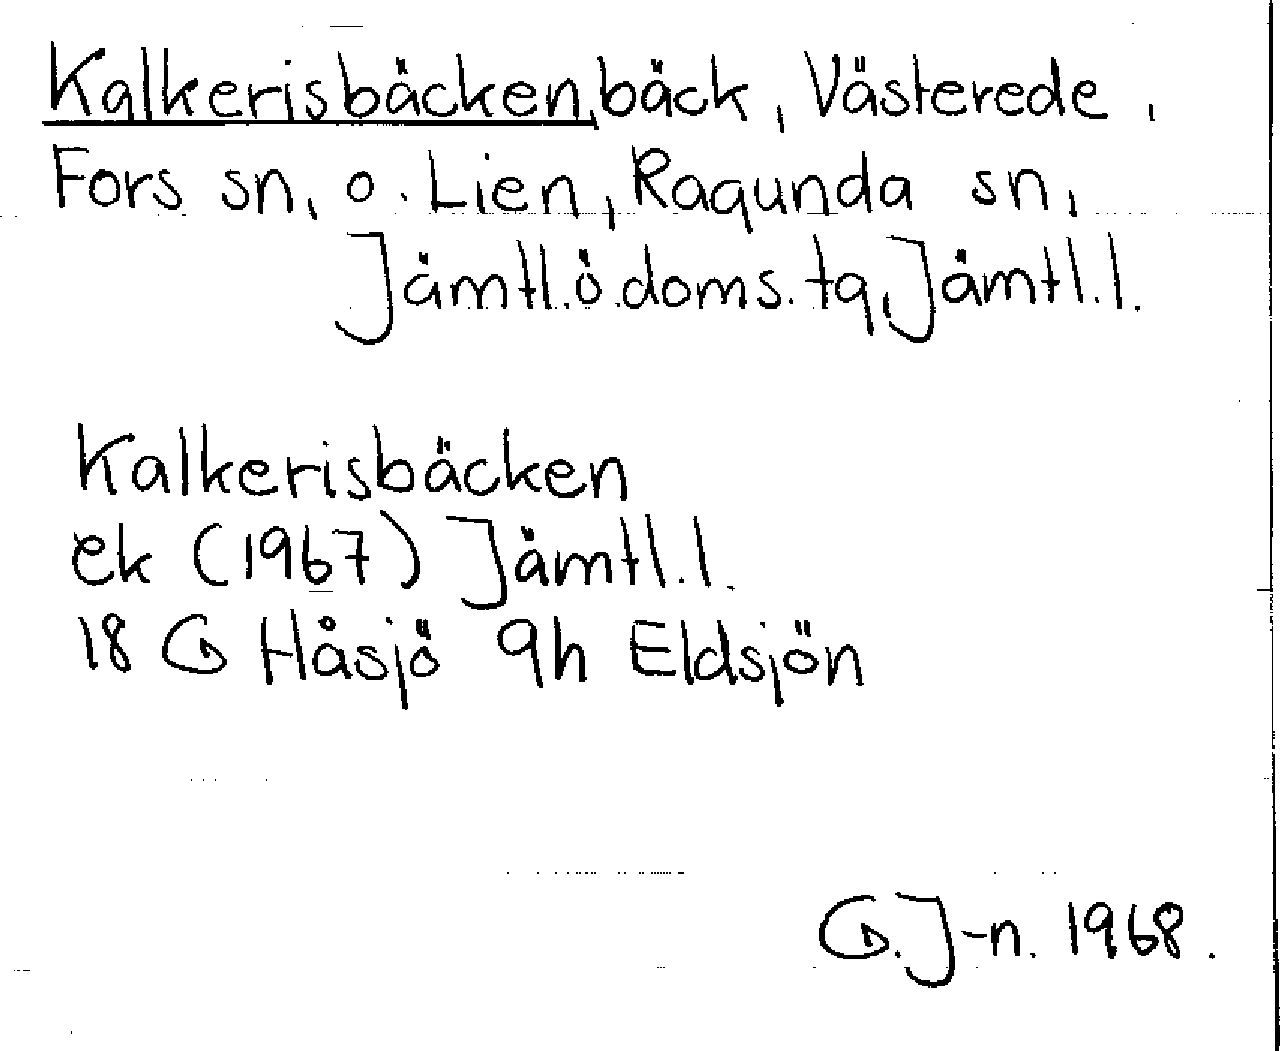 Kalkerisbäcken, bäck, Västerede,
Fors sn, o. Lien, Ragunda sn,
Jämtl.ö.doms.tg, Jämtl.l.
Kalkerisbäcken
ek (1967) Jämtl.l.
18 G Håsjö 9h Eldsjön
G.J-n. 1968.